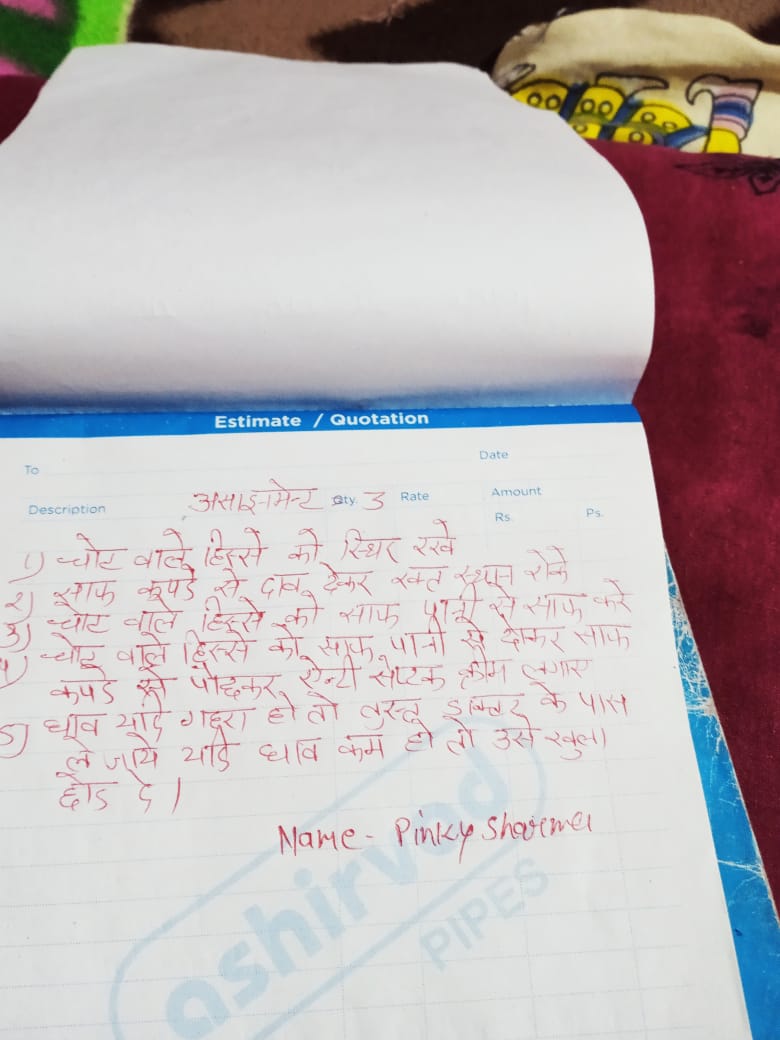 Estimate / Quotation
To
Date
Description असाइनमेन्ट Qty. 3 Rate Amount
Rs. Ps.
1) चोट वाले हिस्से को स्थिर रखे
2) साफ कपडे से दाब देकर रक्त स्थान रोकें
3) चोट वाले हिस्से को साफ पानी से साफ करें
4) चोट वाले हिस्से को साफ पानी से धोकर साफ
कपडे से पोछकर ऐन्टी सेप्टक क्रीम लगाए
5) घाव यदि गहरा हो तो तुरन्त डाक्टर के पास
ले जाये यदि घाव कम हो तो उसे खुला
छोड दे।
Name - Pinky Sharma
ashirvad
PIPES